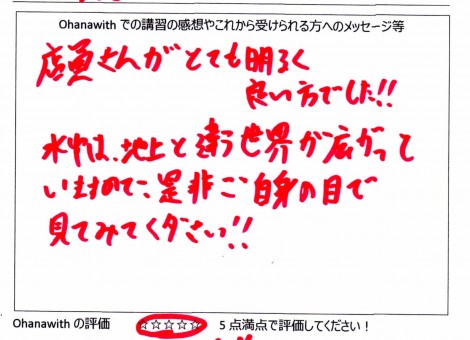 Ohanawith での講習の感想やこれから受けられる方へのメッセージ等
店員さんがとても明るく
良い方でした!!
水中は、地上と違う世界が広がって
いますので、是非ご自身の目で
見てみてください!!
Ohanawith の評価 ☆☆☆☆☆ 5 点満点で評価してください！